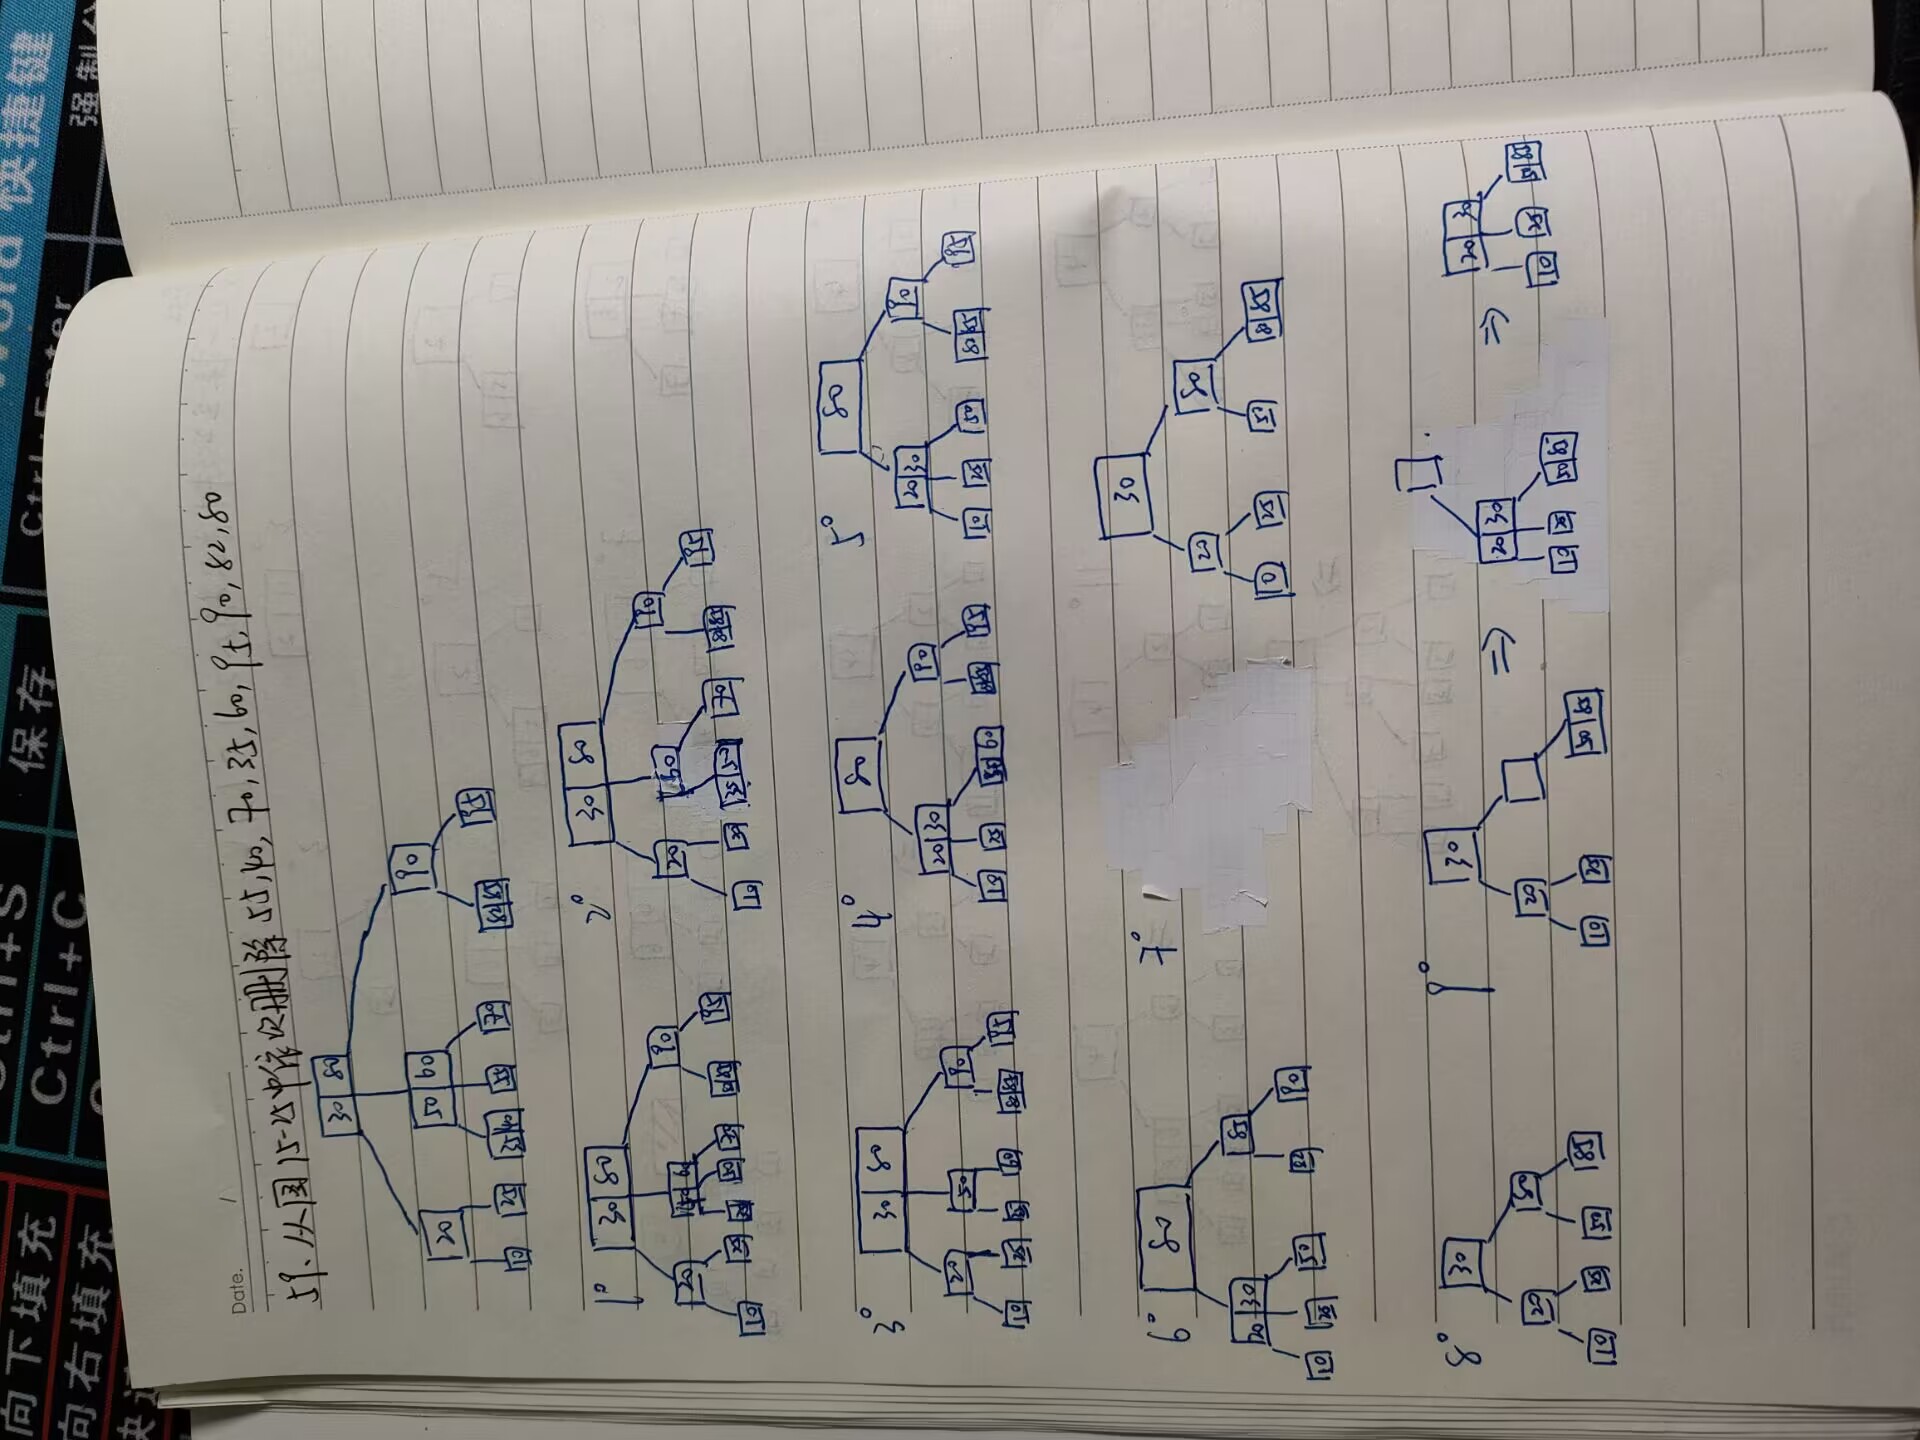 向下填充
Ctrl+S
保存
Word 快捷键
向右填充
Ctrl+C
Ctrl+Enter
强制
Date. /
59、从图15-25中依次删除 55,40,70,35,60,95,90,82,80
30 80
20 50 60 90
10 25 35 40 55 70 82 85 95
1° 30 80
20 60 90
10 50 95
2° 30 80
20 60 90
10 35 50 70 85 95
3° 30 80
20 50 90
10 25 60 95
4° 80
20 30 90
10 25 60 95
5° 80
20 30 90
10 25 50 80 85 95
6° 80
20 30 85
10 25 50 82 90
7° 30
20 80
10 25 50 85
8° 30
20
10 25 50 85
9° 30 ⇒ 20 30 ⇒ 20 30
20
10 25 50 85 10 25 50 85 10 25 50 85